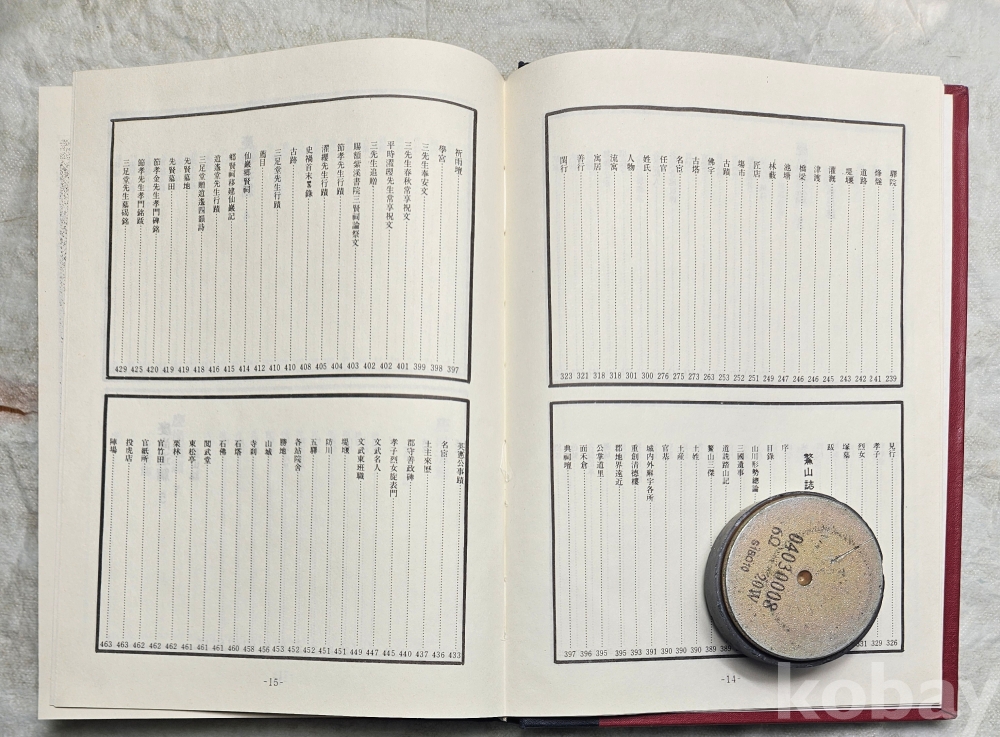 驛院 239
烽燧 241
道路 242
堤堰 243
灌漑 245
津渡 246
橋梁 246
池塘 247
林藪 249
匠店 251
場市 252
古蹟 253
佛宇 263
古塔 273
名宦 275
任官 276
姓氏 300
人物 301
流寓 318
寓居 318
善行 321
閨行 323
見行 326
孝子 329
烈女 331
塚墓
跋
鰲山誌
序
目錄
山川形勢總論
三國遺事
道詵踏山記
鰲山三傑 389
土姓 390
土産 390
官基 390
城内外廨宇各所 391
重創清德樓 393
郡地界遠近 395
公掌道里 395
而禾倉 396
典祠壇 397
-14-
祈雨壇 397
學宮 398
三先生奉安文 399
三先生春秋常享祝文 401
平時濯纓先生常享祝文 402
三先生追贈 402
賜額紫溪書院三賢祠諭祭文 403
節孝先生行蹟 404
濯纓先生行蹟 405
史禍首末事錄 408
古跡 410
三足堂先生行蹟 410
舊目 412
仙巖鄉賢祠 414
鄉賢祠移建仙巖記 415
逍遙堂先生行蹟 416
三足堂贈逍遙四韻詩 418
先賢墓地 419
先賢墓田 419
節孝金先生孝門碑銘 420
節孝先生孝門銘跋 425
三足堂先生墓碣銘 429
英憲公事蹟 433
名宦 436
土主來歷 437
郡守善政碑 440
孝子烈女旌表門 445
文武名人 447
文武東班職 449
堤堰 451
防川 451
五驛 452
各站院舍 452
勝地 453
山城 456
寺刹 458
石塔 460
石佛 461
閱武堂 461
東松亭 461
栗林 462
官竹田 462
官紙所 462
投虎店 463
陣場 463
-15-
04030008
6Ω
20W
kobay